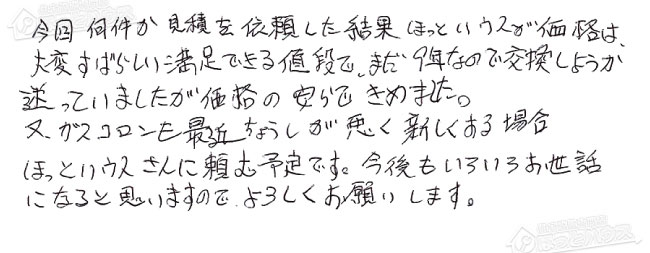 今回 何件か見積を依頼した結果 ほっとハウスが価格は、
大変すばらしい満足できる値段で、まだ9年なので交換しようか
迷っていましたが価格の安らできめました。
又、ガスコロンも最近ちょうしが悪く新しくある場合
ほっとハウスさんに頼む予定です。今後もいろいろお世話
になると思いますので、よろしくお願いします。